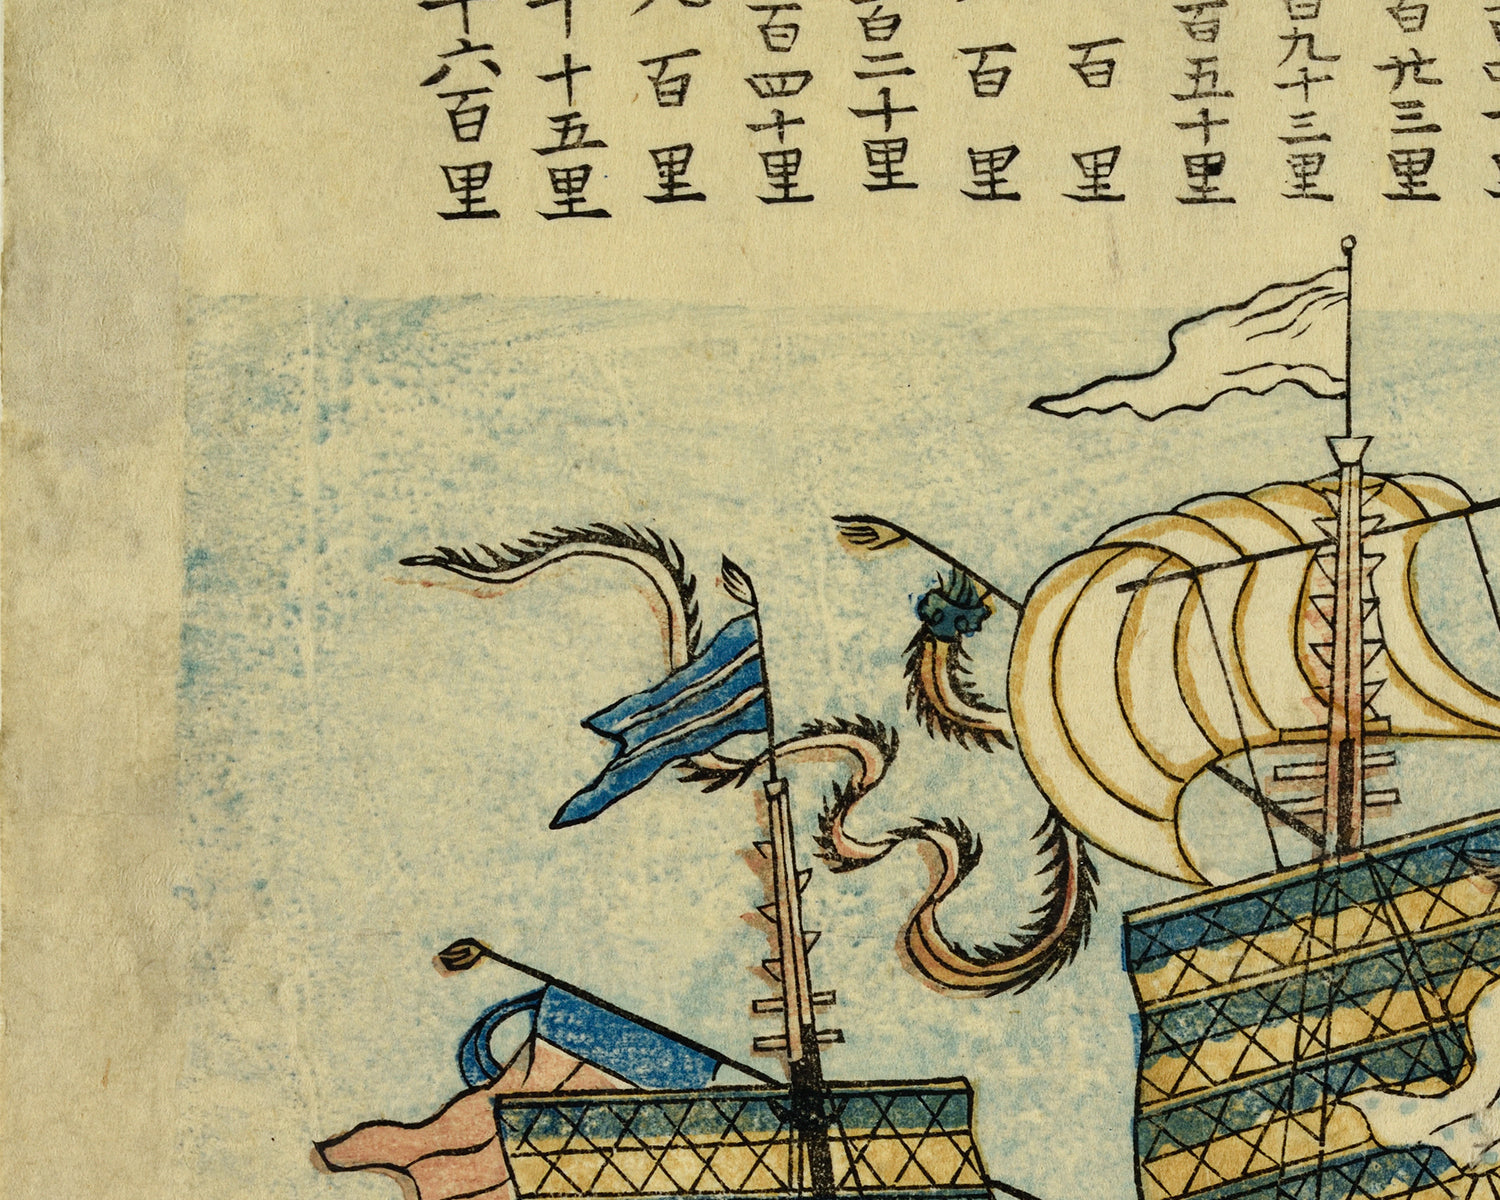 百廿三里
百九十三里
百五十里
百里
百里
百二十里
百四十里
百里
十五里
十六百里